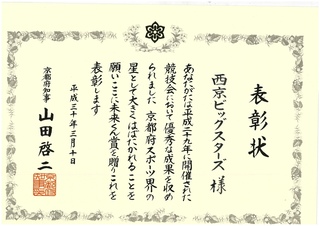 表彰状
西京ビッグスターズ 様
あなたがたは平成二十九年に開催された
競技会において優秀な成果を収め
られました 京都府スポーツ界の
星として大きくはばたかれることを
願いここに未来くん賞を贈りこれを
表彰します
平成三十年三月十日
京都府知事 山田啓二